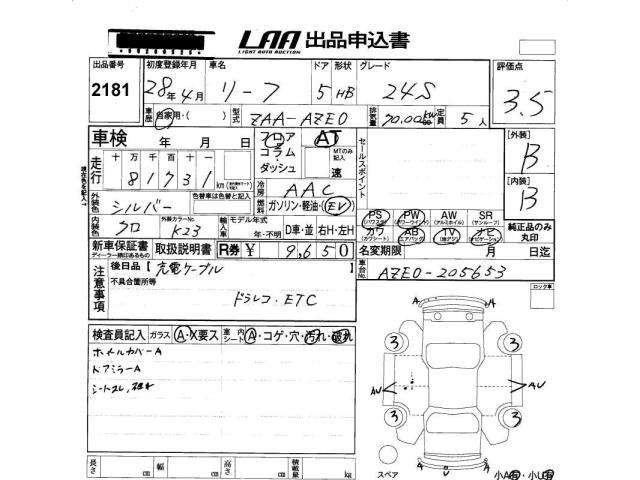 LAA 出品申込書
LIGHT AUTO AUCTION
出品番号 2181
初度登録年月 28年4月
車名 リーフ
ドア 5
形状 HB
グレード 24S
評価点 3.5
車歴 自家用・( )
型式 ZAA-AZE0
排気量
定員 5人
車検 年 月 日
走行 十万千百十一
81731 km
フロア コラム ダッシュ
AT
MTのみ記入
速
セールスポイント
[外装] B
[内装] B
外装色 シルバー
色替車は色替と記入
冷房 AAC
燃料 ガソリン・軽油・(EV)
内装色 クロ
外装カラーNo. K23
輸入車
モデル年式
年・不明
D車・並 右H・左H
PS PW AW SR
(パワステ) (パワーウインド) (アルミホイル) (サンルーフ)
カワ AB TV ナビ
(カワシート) (エアバック) (地デジ) (ナビゲーション)
純正品のみ丸印
新車保証書 取扱説明書
ディーラー捺印あるもの
R券 ¥ 9,650
名変期限 月 日迄
車台No. AZE0-205653
注意事項
後日品【 充電ケーブル
不具合箇所等
ドラレコ. ETC
ロック車
検査員記入 ガラス A・X要ス
車内シート A・コゲ・穴・汚れ・破れ
ホイルカバーA
ドアミラーA
3 3
AU AU
3 3
長さ cm 幅 cm 高さ cm 積載量 kg
スペア
小A有・小U有